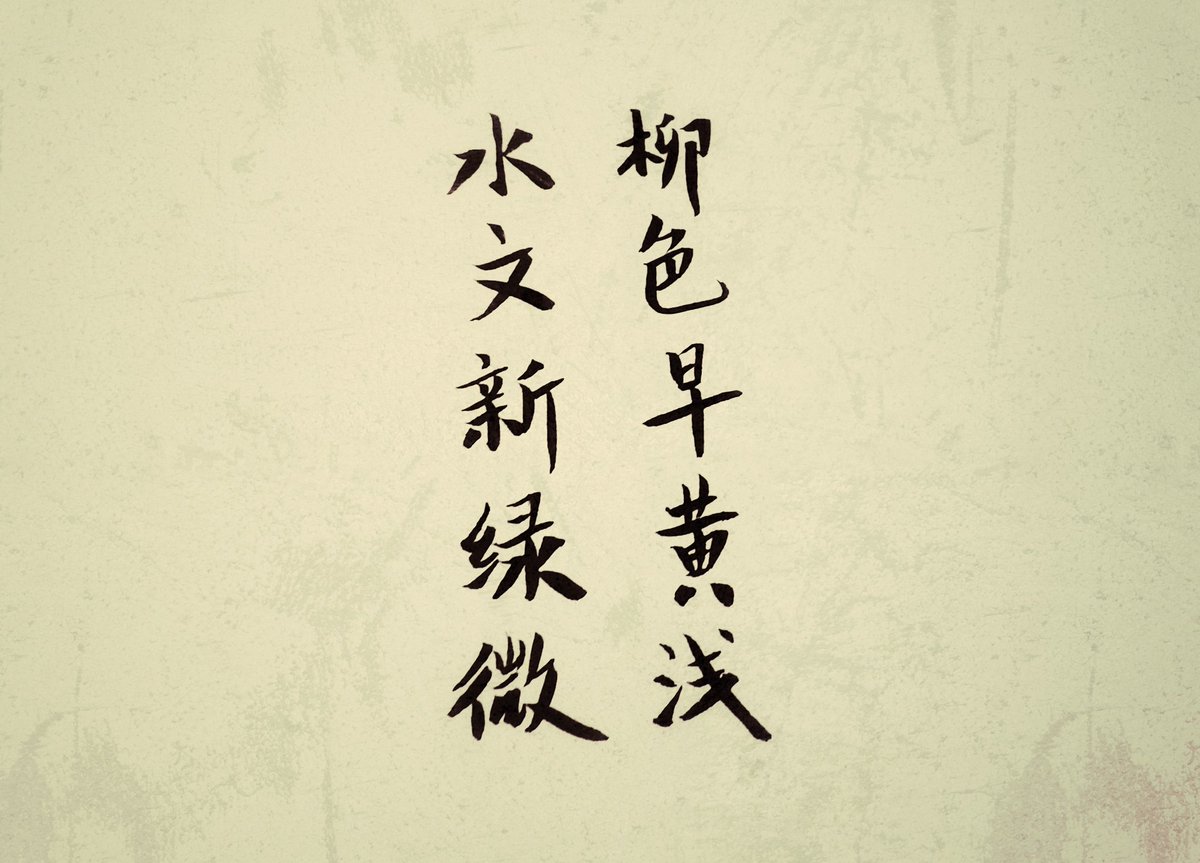 柳色早黄浅
水文新绿微